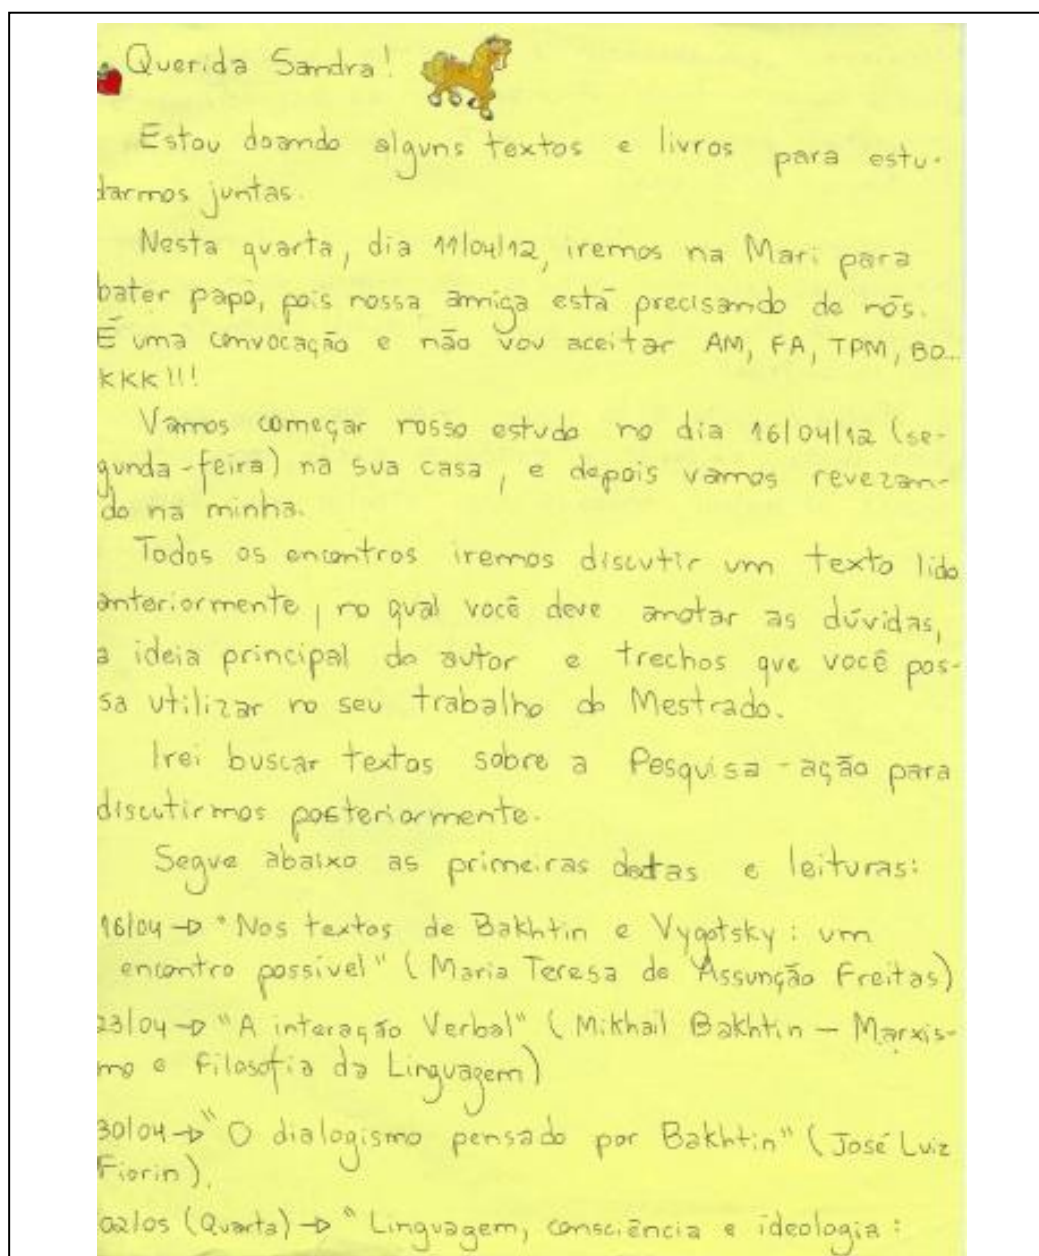 Querida Sandra!
Estou doando alguns textos e livros para estu-
darmos juntas.
Nesta quarta, dia 11/04/12, iremos na Mari para
bater papo, pois nossa amiga está precisando de nós.
É uma convocação e não vou aceitar AM, FA, TPM, BO...
KKK!!!
Vamos começar nosso estudo no dia 16/04/12 (se-
gunda-feira) na sua casa, e depois vamos revezan-
do na minha.
Todos os encontros iremos discutir um texto lido
anteriormente, no qual você deve anotar as dúvidas,
a ideia principal do autor e trechos que você pos-
sa utilizar no seu trabalho do Mestrado.
Irei buscar textos sobre a Pesquisa-ação para
discutirmos posteriormente.
Segue abaixo as primeiras datas e leituras:
16/04 → "Nos textos de Bakhtin e Vygotsky: um
encontro possível" (Maria Teresa de Assunção Freitas)
23/04 → "A interação Verbal" (Mikhail Bakhtin – Marxis-
mo e Filosofia da Linguagem)
30/04 → "O dialogismo pensado por Bakhtin" (José Luiz
Fiorin).
02/05 (Quarta) → "Linguagem, consciência e ideologia: